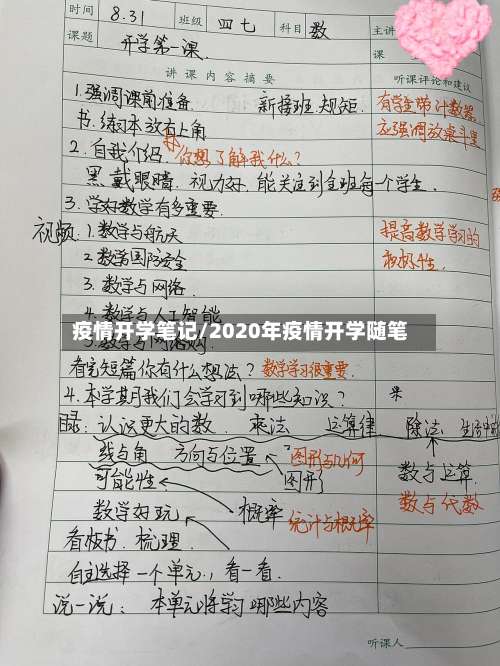 时间 8.31 班级 四七 科目 数 主讲
课题 开学第一课. 课
讲课内容摘要 听课评论和建议
1.强调课前准备 新接班.规矩. 有学生带计数器
书.练习本放右上角 应强调放桌斗里
2.自我介绍 你想了解我什么?
黑.戴眼睛.视力好.能关注到全班每一个学生.
3.学好数学有多重要.
视频:1.数学与航天 提高数学学习的
2.数学国防安全
3.数学与网络.
4.数学与人工智能
疫情开学笔记/2020年疫情开学随笔
看完短篇你有什么想法? 数学学习很重要.
4.本学期我们会学习到哪些知识?
目录:认识更大的数. 乘法 运算律 除法
线与角 方向与位置 图形与几何
可能性. 图形 数与运算.
数学好玩 概率 统计与概率 数与代数
看板书.梳理.
自主选择一个单元.,看一看.
说一说: 本单元将学习哪些内容
听课人